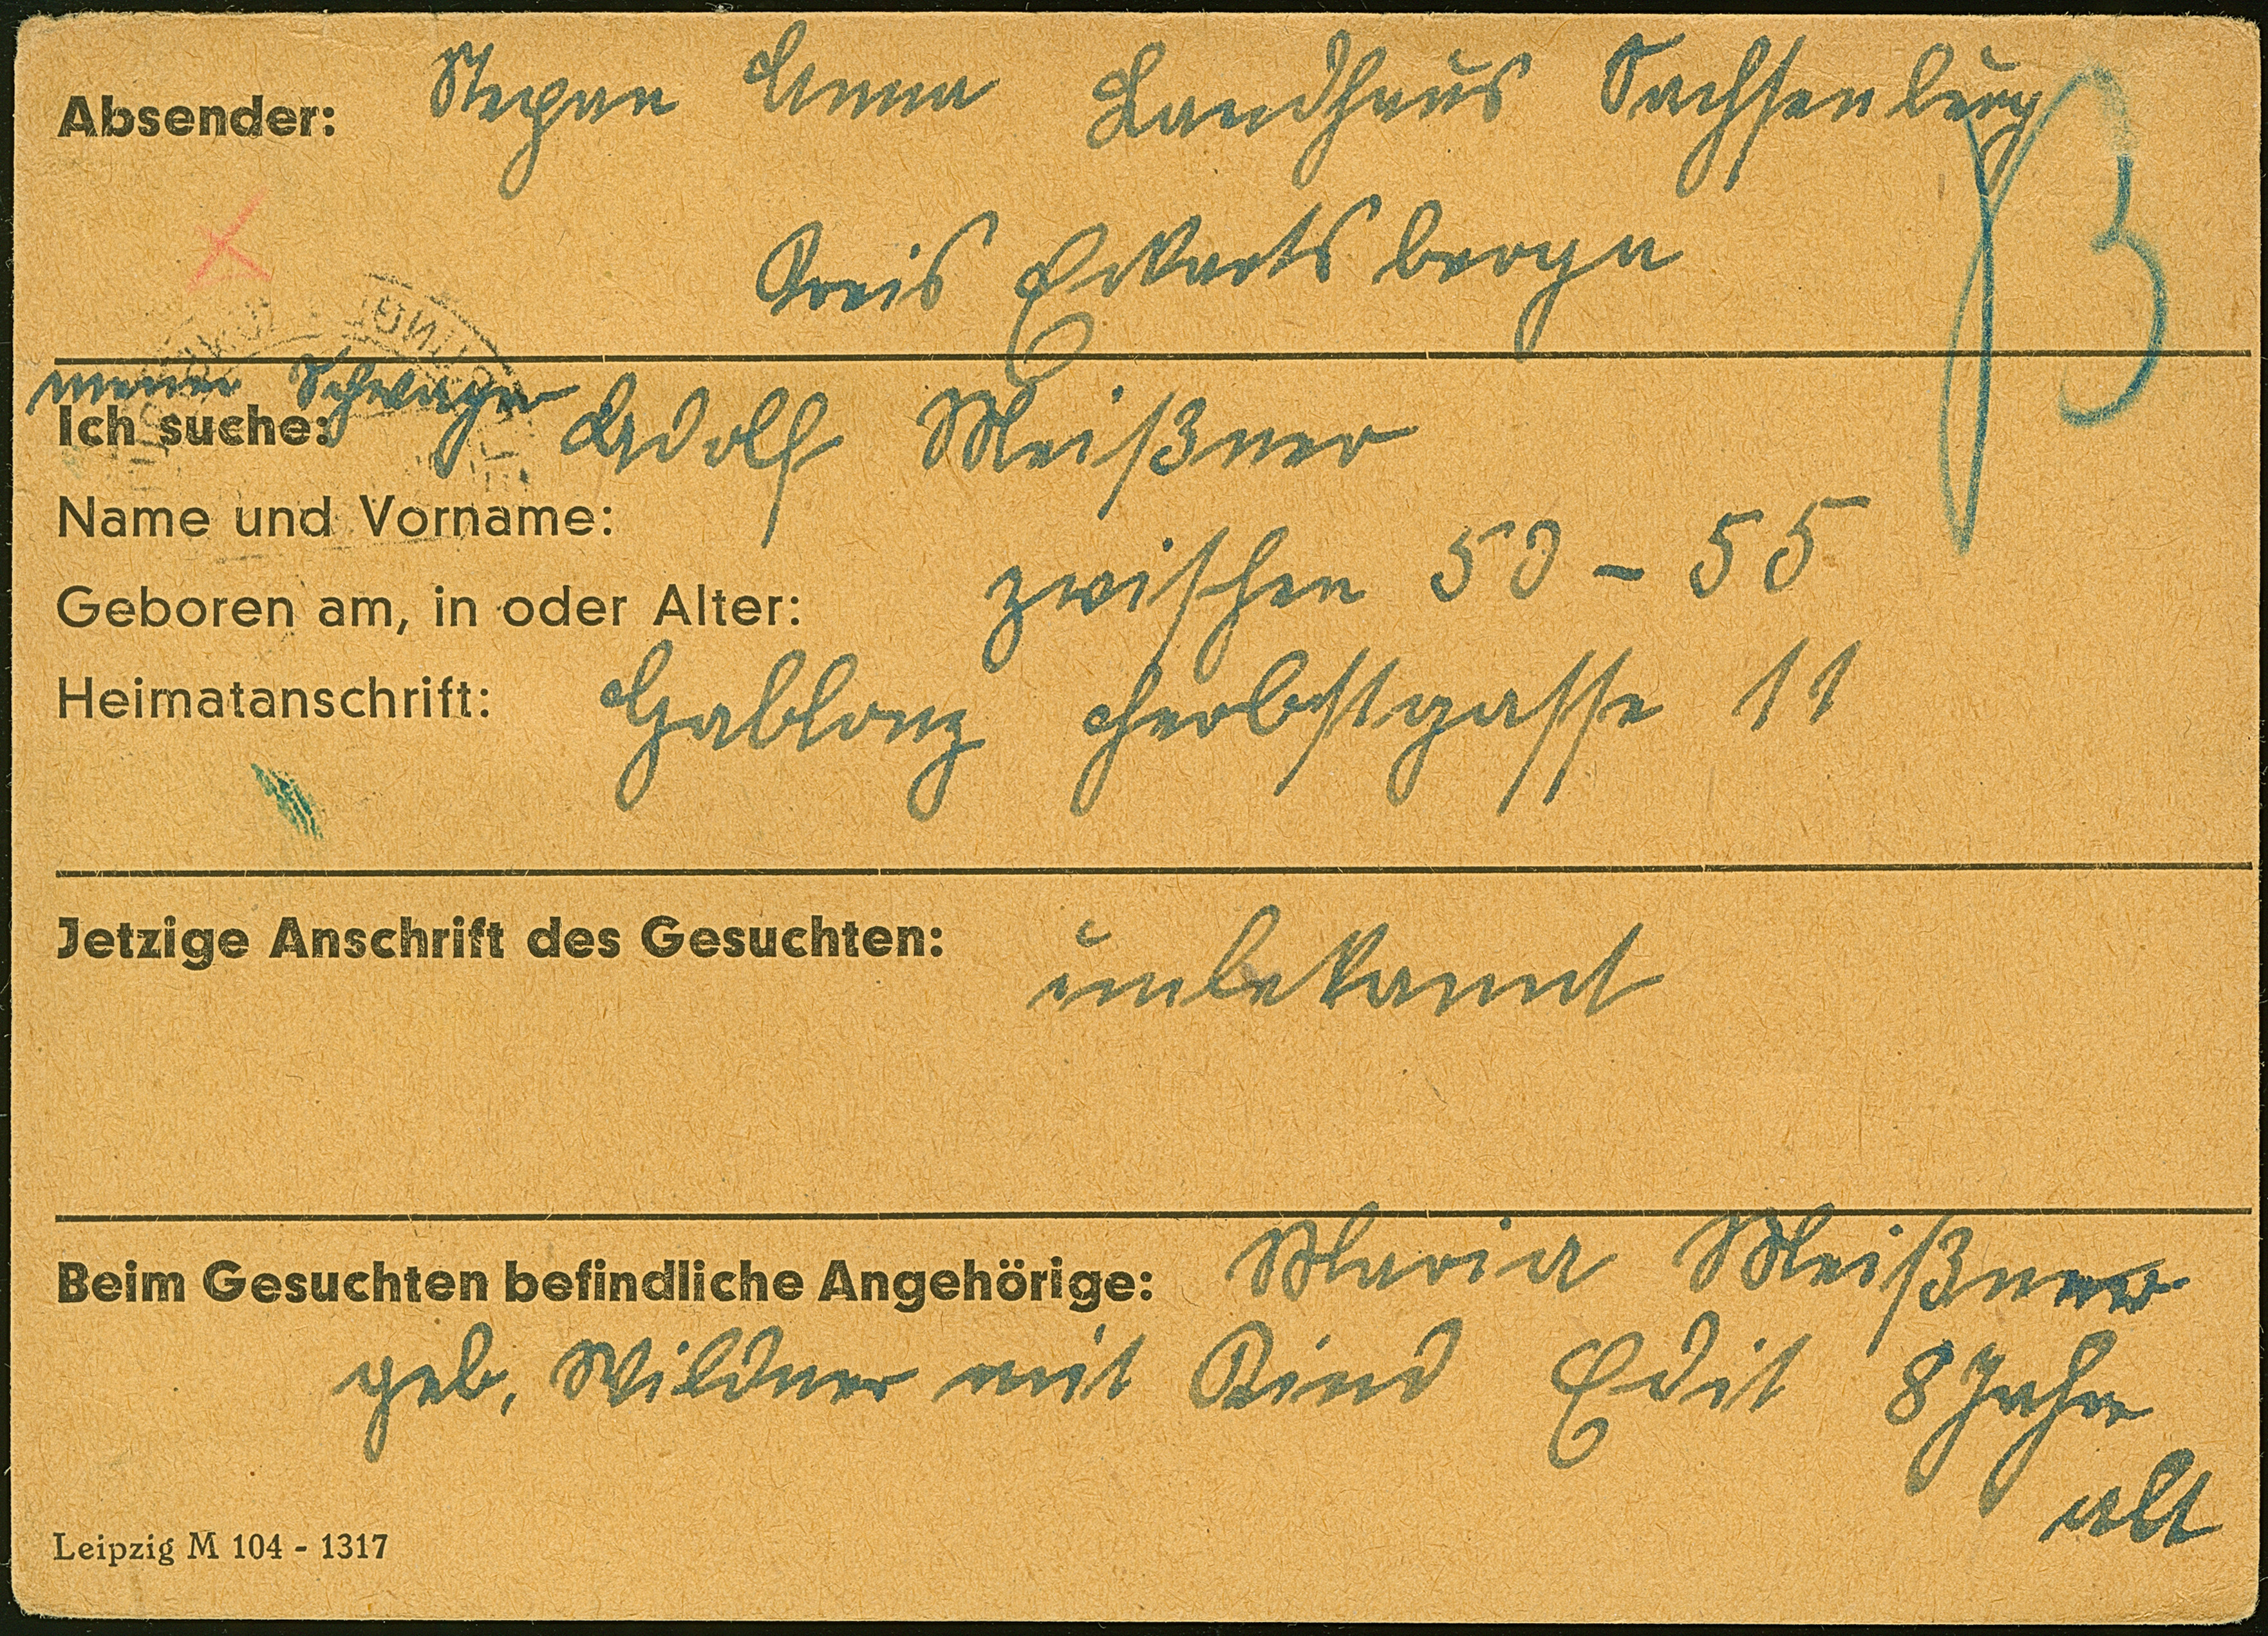 Absender: Stepan Anna Landhaus Sachsenburg
Kreis Eckartsberga
meinen Schwager
Ich suche: Adolf Meißner
Name und Vorname:
Geboren am, in oder Alter: zwischen 50 – 55
Heimatanschrift: Gablonz Herbstgasse 11
Jetzige Anschrift des Gesuchten: unbekannt
Beim Gesuchten befindliche Angehörige: Maria Meißner
geb. Wildner mit Kind Edit 8 Jahre
alt
Leipzig M 104 - 1317